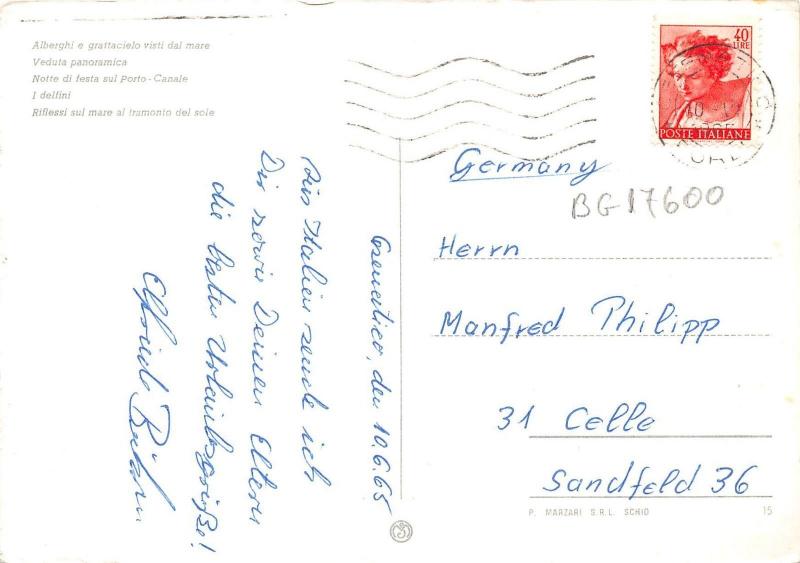 Alberghi e grattacielo visti dal mare
Veduta panoramica
Notte di festa sul Porto - Canale
I delfini
Riflessi sul mare al tramonto del sole
40
LIRE
POSTE ITALIANE
Germany
BG17600
Herrn
Manfred Philipp
31 Celle
Sandfeld 36
P. MARZARI S.R.L. SCHIO
15
Cesenatico, den 10.6.65
Aus Italien sende ich
Dir sowie Deinen Eltern
die besten Urlaubsgrüße!
Elfriede